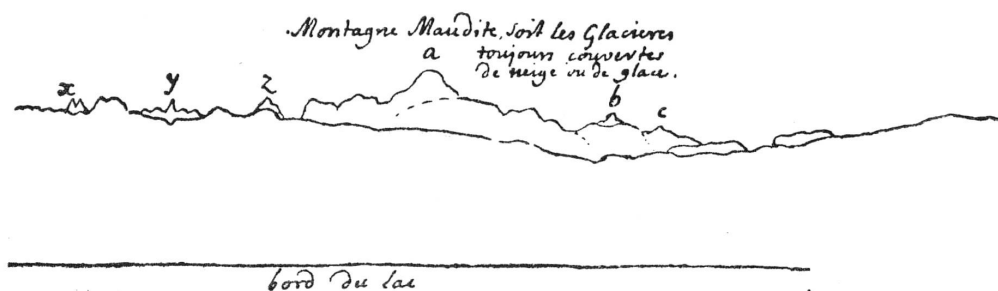 Montagne Maudite, soit les Glacieres
toujours couvertes
de neige ou de glace.
a
x y z
b
c
bord du lac